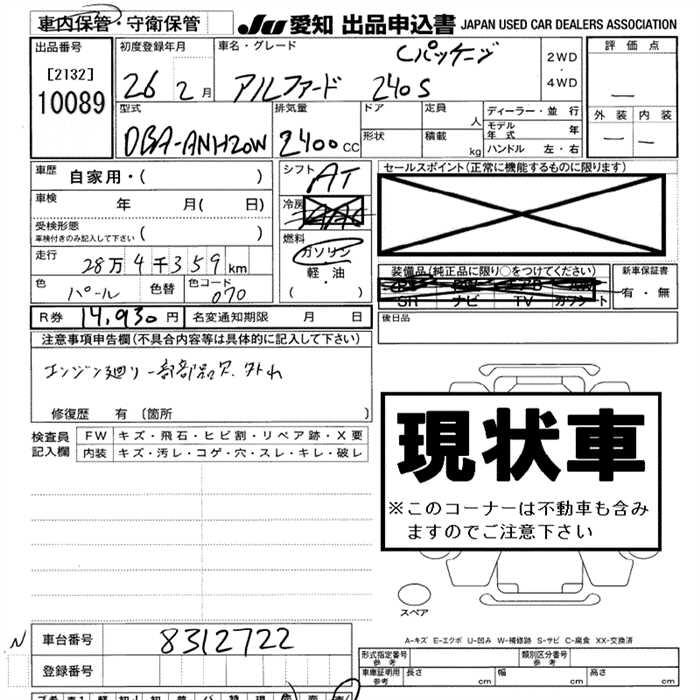 車内保管・守衛保管
JU 愛知 出品申込書 JAPAN USED CAR DEALERS ASSOCIATION
出品番号
[2132]
10089
初度登録年月
26 2 月
車名・グレード
Cパッケージ
アルファード 240S
2WD
・
4WD
評価点
—
外装 内装
— —
型式
DBA-ANH20W
排気量
2400 CC
ドア
形状
定員 人
積載 kg
ディーラー・並行
モデル年式 年
ハンドル 左・右
車歴 自家用・( )
車検 年 月( 日)
受検形態
車検付きのみ記入して下さい ( )
走行 28万4千359km
色 パール 色替 色コード 070
R券 14,930円 名変通知期限 月 日
シフト AT
冷房
燃料
ガソリン
軽・油
( )
セールスポイント(正常に機能するものに限ります)
装備品(純正品に限り○をつけてください)
SH ナビ TV
新車保証書
有・無
後日品
注意事項申告欄(不具合内容等は具体的に記入して下さい)
エンジン廻り一部部品欠.外れ
修復歴 有 [箇所 ]
検査員記入欄
FW キズ・飛石・ヒビ割・リペア跡・X要
内装 キズ・汚レ・コゲ・穴・スレ・キレ・破レ
現状車
※このコーナーは不動車も含み
ますのでご注意下さい
スペア
A-キズ E-エクボ U-凹み W-補修跡 S-サビ C-腐食 XX-交換済
N 車台番号 8312722
登録番号
形式指定番号 参考 類別区分番号 参考
車庫証明用 参考 長さ cm 幅 cm 高さ cm